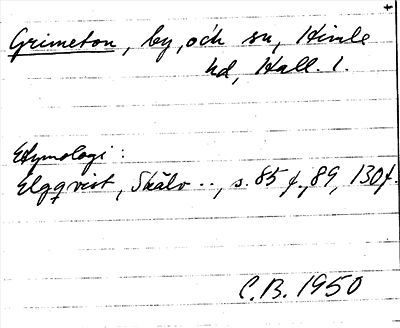 Grimeton, by, och sn, Himle
hd, Hall. l.
Etymologi:
Elgqvist, Skälv .., s. 85 f., 89, 130 f.
C.B. 1950